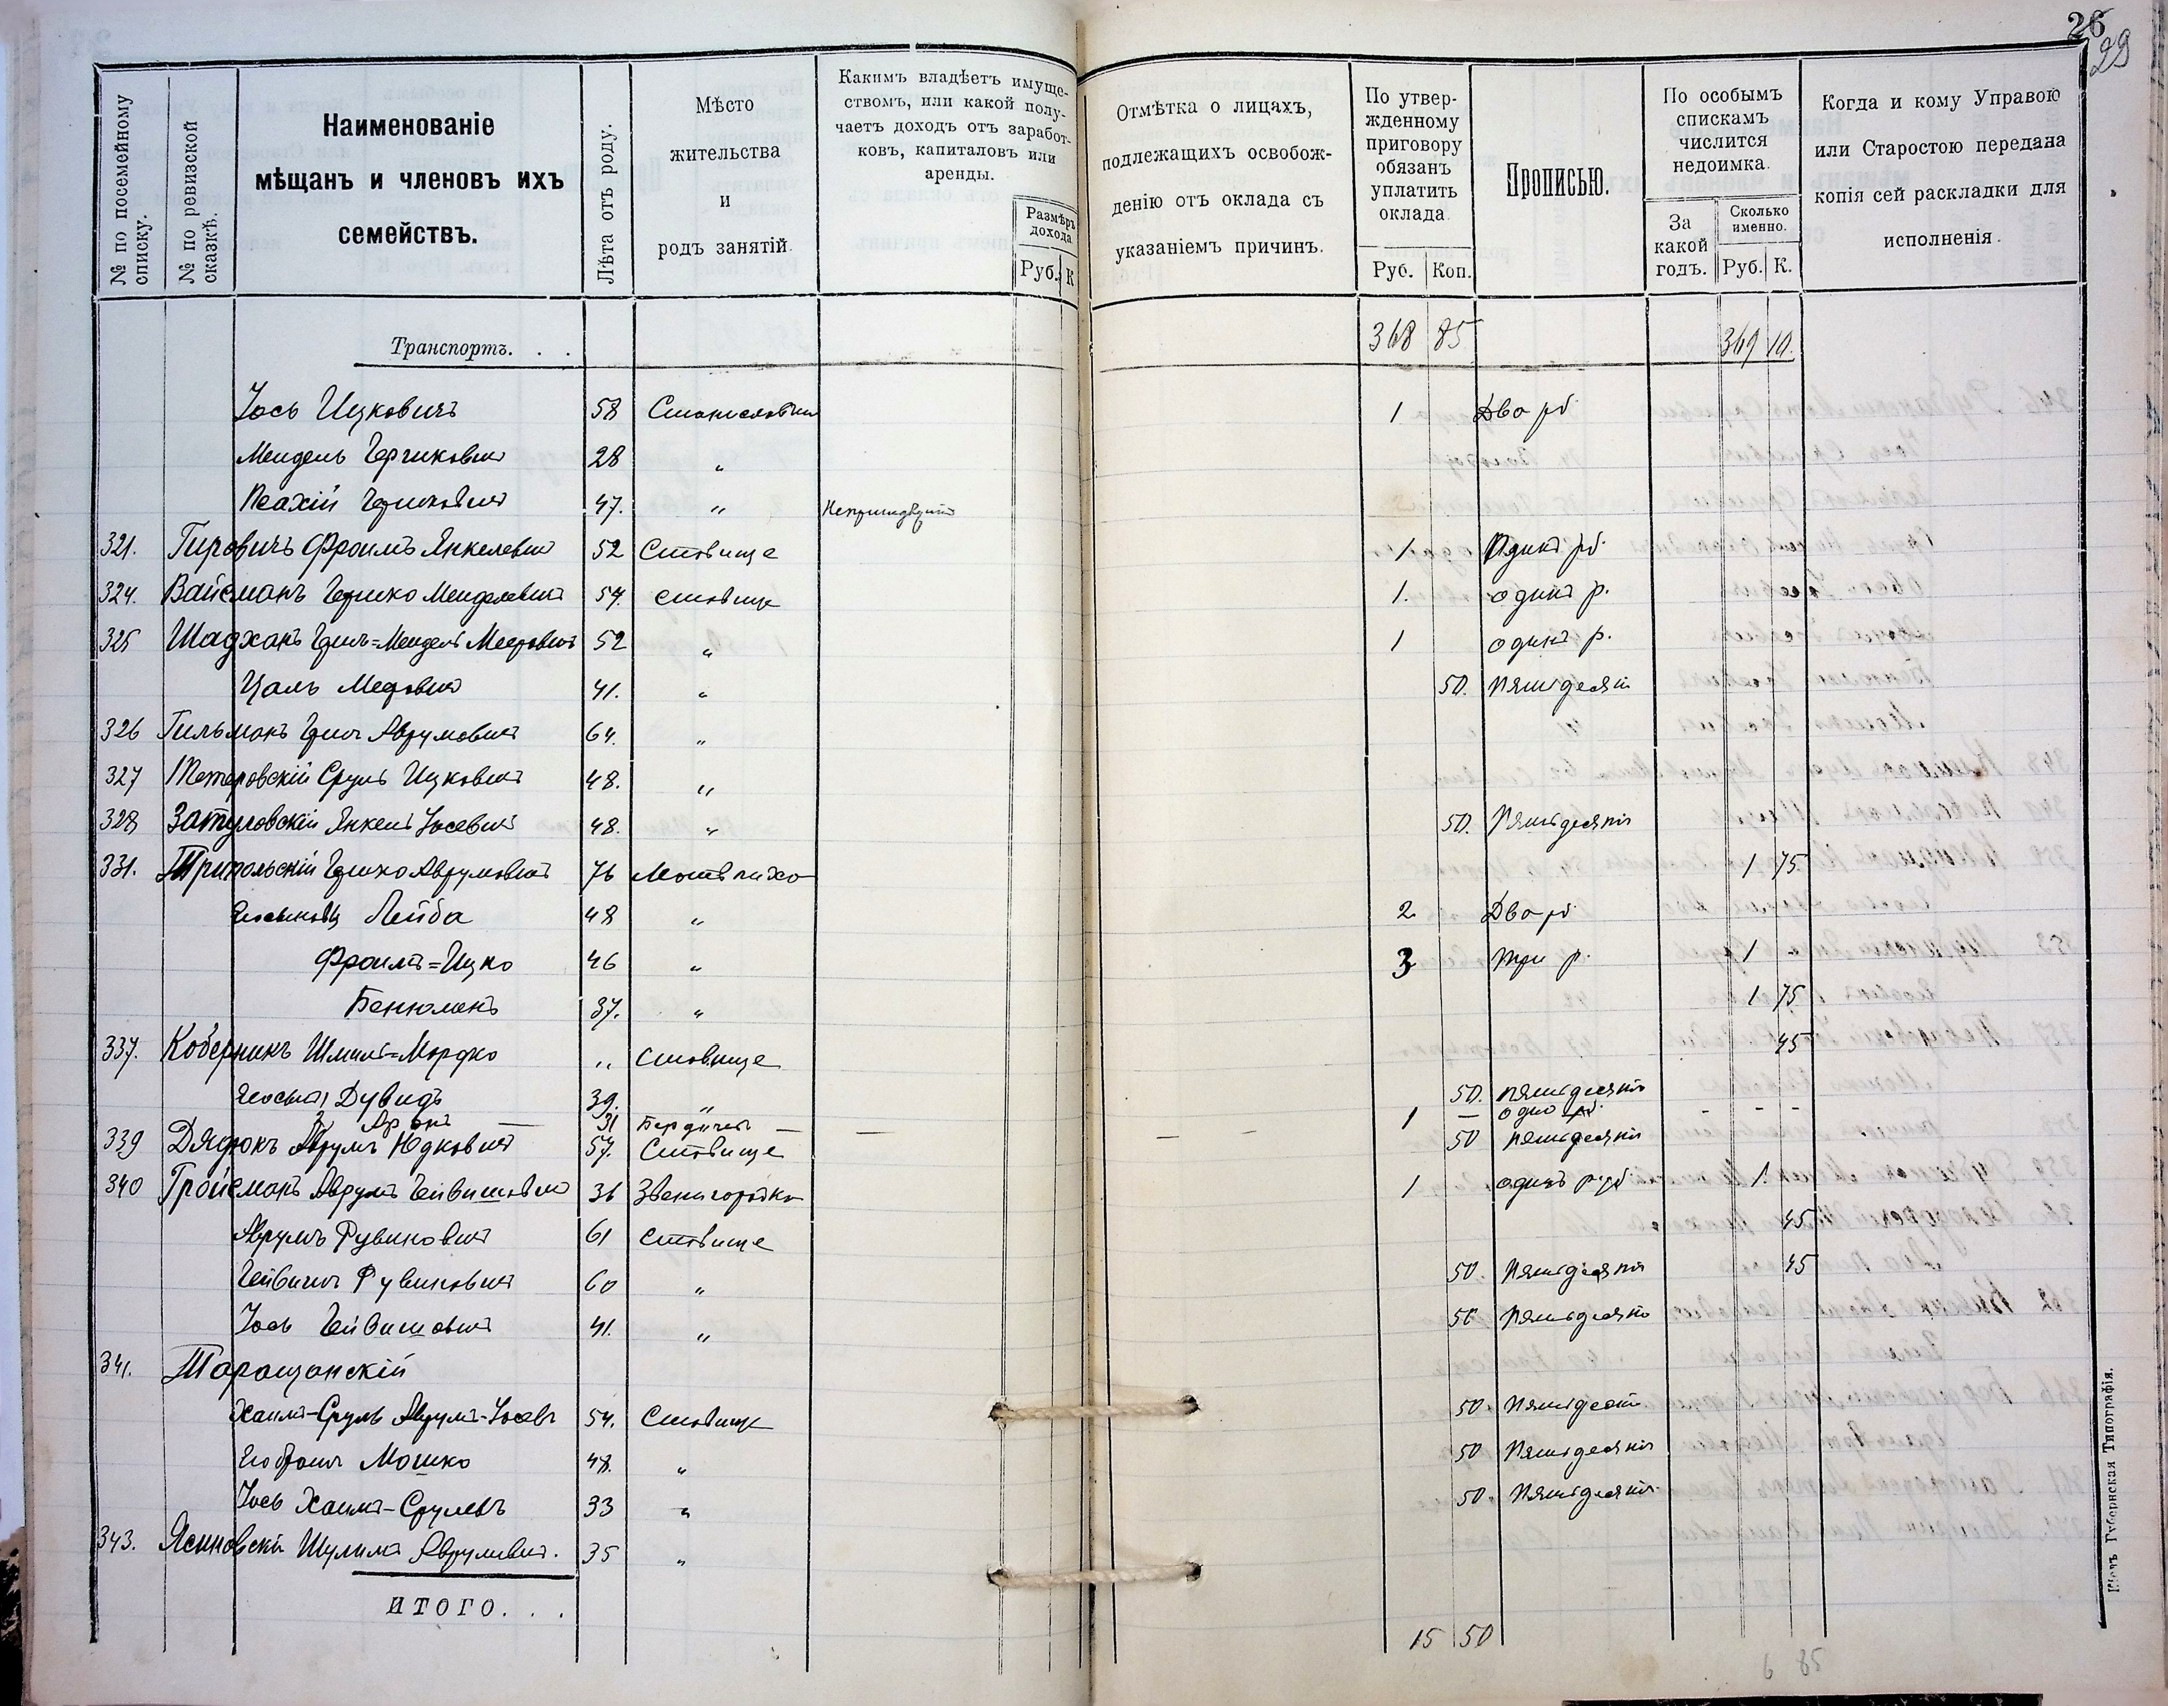 26
29
№ по посемейному списку.
№ по ревизской сказкѣ.
Наименованіе мѣщанъ и членовъ ихъ семействъ.
Лѣта отъ роду.
Мѣсто жительства и родъ занятій.
Какимъ владѣетъ имуществомъ, или какой получаетъ доходъ отъ заработковъ, капиталовъ или аренды.
Размѣръ дохода
Руб. К
Отмѣтка о лицахъ, подлежащихъ освобожденію отъ оклада съ указаніемъ причинъ.
По утвержденному приговору обязанъ уплатить оклада.
Руб. Коп.
Прописью.
По особымъ спискамъ числится недоимка.
За какой годъ.
Сколько именно.
Руб. К.
Когда и кому Управою или Старостою передана копія сей раскладки для исполненія.
Транспортъ. . . 368 85 369 10.
Іось Ицковичъ 58 1 Два рб
Мендель 28 "
47. "
321. Фроимъ Янкелевич 52 Ставище 1. Одинъ рб.
324. Вайсманъ Гершко Менделевич 54. ставище 1. одинъ р.
325 Шадханъ Герш=Мендель Меерович 52 " 1 одинъ р.
Цаль Меерович 41. " 50. Пятьдесят
326 Гильманъ Герш Аврумович 64. "
327 Тетеровскій Сруль Ицкович 48. "
328 Затуловскій Янкель Іосевич 48. " 50. Пятьдесят
331. Трипольскій Гершко Аврумович 76 1 75
Лейба 48 " 2 Два рб
Фроимъ=Ицко 46 " 3 три р. 1 -
Бенюменъ 37. " 1 75
337. Коберникъ Шмиль=Мордко " Ставище 45
Дувидъ 39. " 50. пятьдесят
Аронъ 31 Бердичев 1 — одно рб. - - -
339 Аврумъ Юдкович 57. Ставище 50 пятьдесят
340 Гройсманъ Аврумъ Гейвишович 36 Звенигородка 1 одинъ руб 1.
Аврумъ Рувинович 61 Ставище 45
Гейвиш Рувинович 60 " 50. Пятьдесят 45
Іось Гейвишович 41. " 50 Пятьдесят
341. Таращанскій
Хаимъ-Сруль Аврумъ-Іосев 54. Ставище 50. Пятьдесят
Мошко 48. " 50 Пятьдесят
Іось Хаимъ-Срулевъ 33 " 50. Пятьдесят
343. Ясиновскій Шулимъ Аврумович. 35 "
ИТОГО. . . 15 50
6 85
Кіевъ Губернская Типографія.